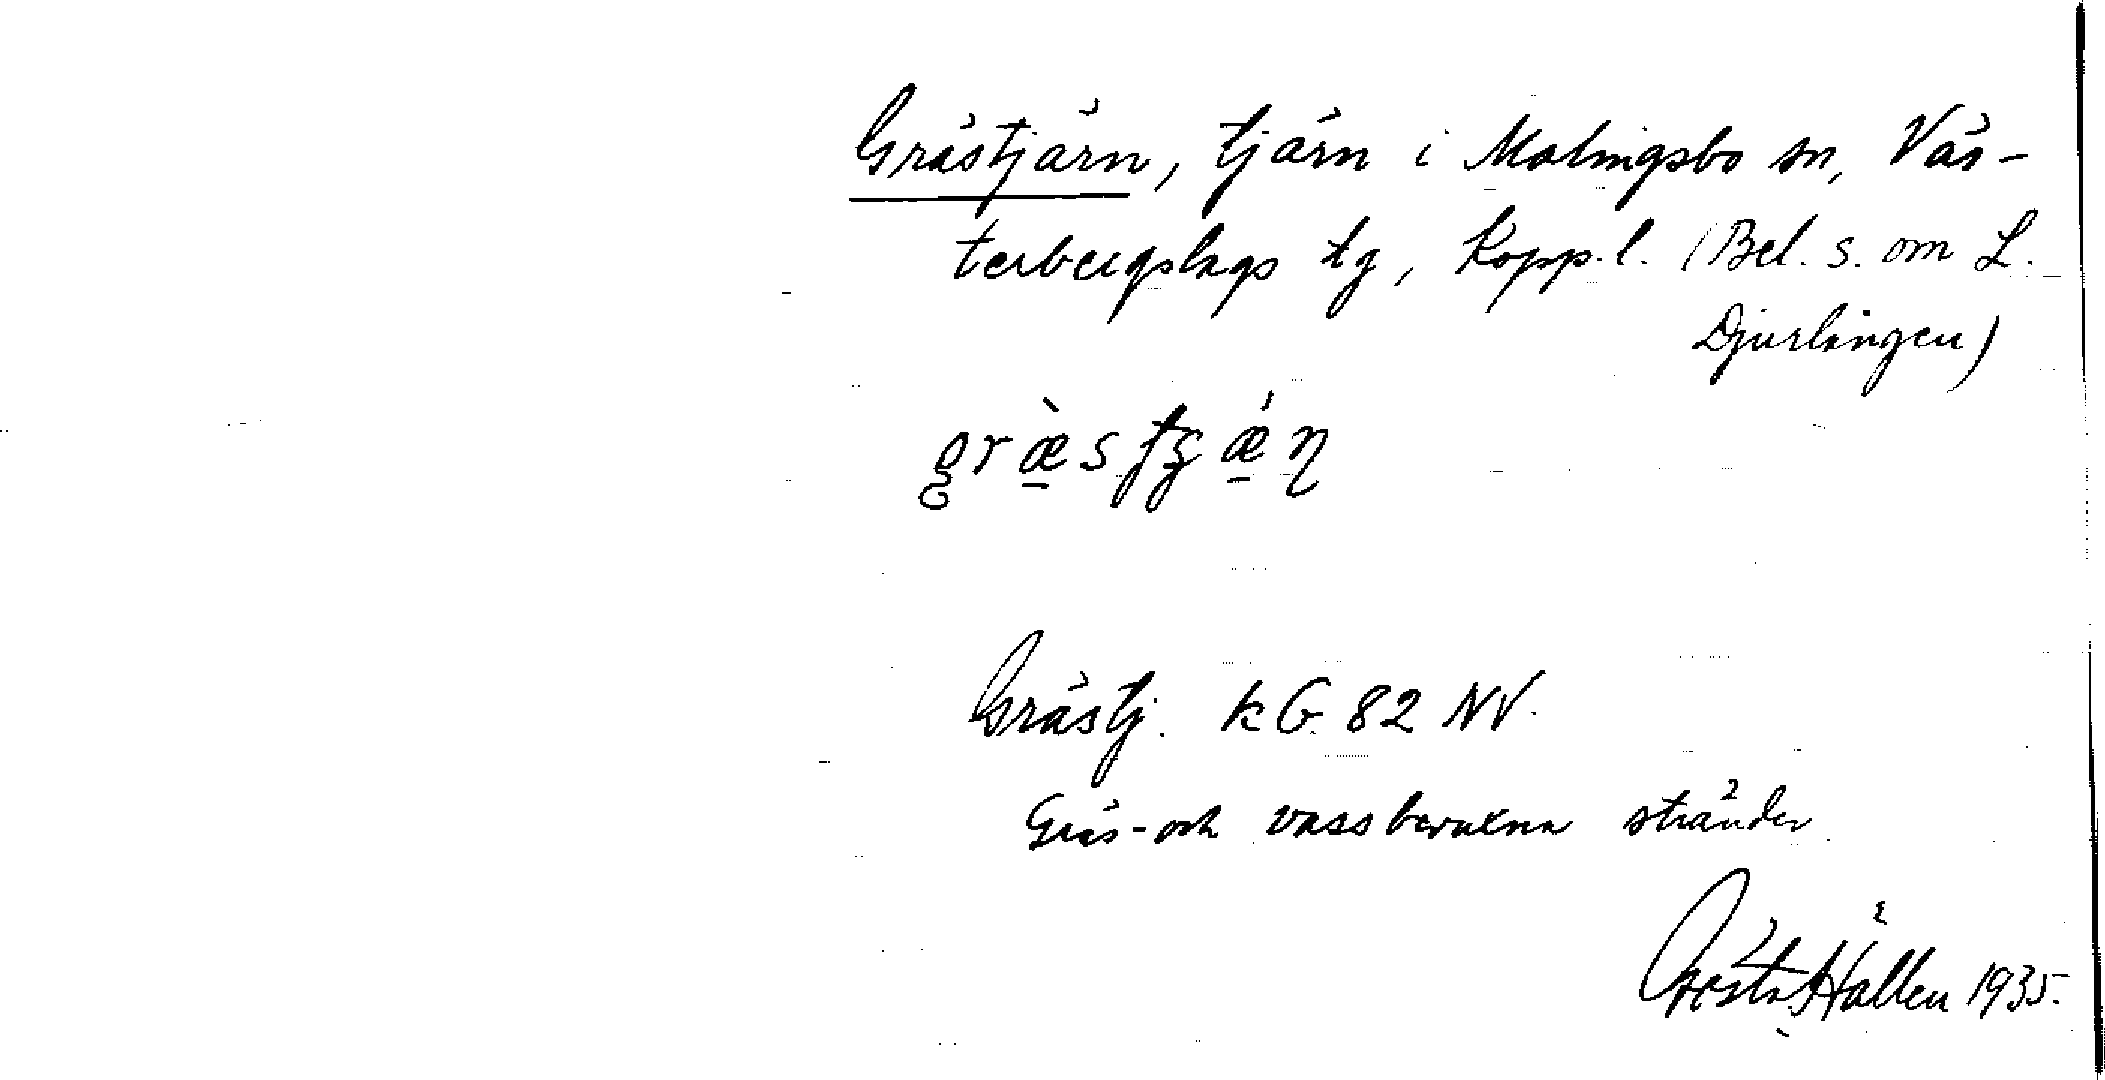 Grästjärn, tjärn i Malingsbo sn, Väs-
terbergslags tg, Kopp.l. (Bel. s. om L.
Djurlången)
græ̀stʂǽɳ
Grästj. kG. 82 NV.
Gräs- och vassbevuxna stränder.
Gösta Hällen 1935.